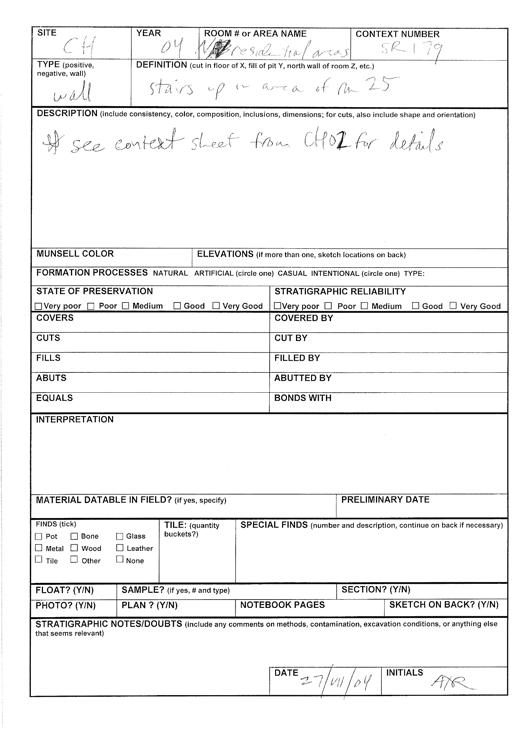 SITE CH YEAR 04 ROOM # or AREA NAME residential areas CONTEXT NUMBER SR179
TYPE (positive, negative, wall) wall
DEFINITION (cut in floor of X, fill of pit Y, north wall of room Z, etc.)
stairs up in area of rm 25
DESCRIPTION (include consistency, color, composition, inclusions, dimensions; for cuts, also include shape and orientation)
see context sheet from CH02 for details
MUNSELL COLOR ELEVATIONS (if more than one, sketch locations on back)
FORMATION PROCESSES NATURAL ARTIFICIAL (circle one) CASUAL INTENTIONAL (circle one) TYPE:
STATE OF PRESERVATION STRATIGRAPHIC RELIABILITY
☐Very poor ☐ Poor ☐ Medium ☐ Good ☐ Very Good ☐Very poor ☐ Poor ☐ Medium ☐ Good ☐ Very Good
COVERS COVERED BY
CUTS CUT BY
FILLS FILLED BY
ABUTS ABUTTED BY
EQUALS BONDS WITH
INTERPRETATION
MATERIAL DATABLE IN FIELD? (if yes, specify) PRELIMINARY DATE
FINDS (tick)
☐ Pot ☐ Bone ☐ Glass
☐ Metal ☐ Wood ☐ Leather
☐ Tile ☐ Other ☐ None
TILE: (quantity
buckets?)
SPECIAL FINDS (number and description, continue on back if necessary)
FLOAT? (Y/N) SAMPLE? (if yes, # and type) SECTION? (Y/N)
PHOTO? (Y/N) PLAN ? (Y/N) NOTEBOOK PAGES SKETCH ON BACK? (Y/N)
STRATIGRAPHIC NOTES/DOUBTS (include any comments on methods, contamination, excavation conditions, or anything else
that seems relevant)
DATE 27/VII/04 INITIALS AXR